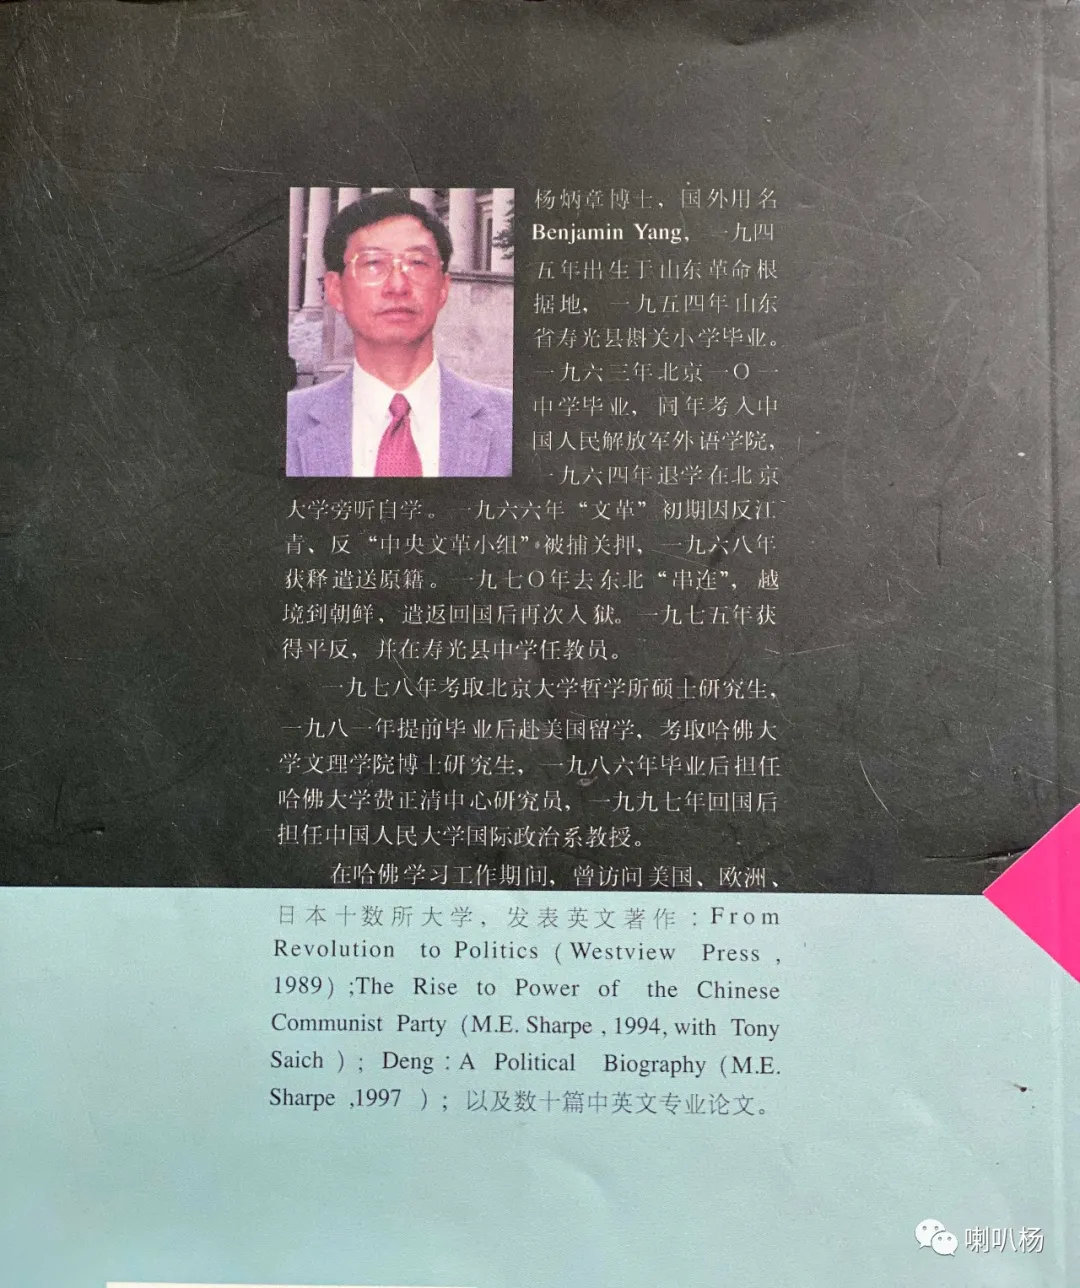 杨炳章博士，国外用名
Benjamin Yang，一九四
五年出生于山东革命根
据地，一九五四年山东
省寿光县斟关小学毕业。
一九六三年北京一〇一
中学毕业，同年考入中
国人民解放军外语学院，
一九六四年退学在北京
大学旁听自学。一九六六年“文革”初期因反江
青、反“中央文革小组”被捕关押，一九六八年
获释遣送原籍。一九七〇年去东北“串连”，越
境到朝鲜，遣返回国后再次入狱。一九七五年获
得平反，并在寿光县中学任教员。
一九七八年考取北京大学哲学所硕士研究生，
一九八一年提前毕业后赴美国留学，考取哈佛大
学文理学院博士研究生，一九八六年毕业后担任
哈佛大学费正清中心研究员，一九九七年回国后
担任中国人民大学国际政治系教授。
在哈佛学习工作期间，曾访问美国、欧洲、
日本十数所大学，发表英文著作：From
Revolution to Politics (Westview Press ,
1989) ;The Rise to Power of the Chinese
Communist Party (M.E. Sharpe , 1994, with Tony
Saich ) ; Deng : A Political Biography (M.E.
Sharpe ,1997 ) ; 以及数十篇中英文专业论文。
喇叭杨